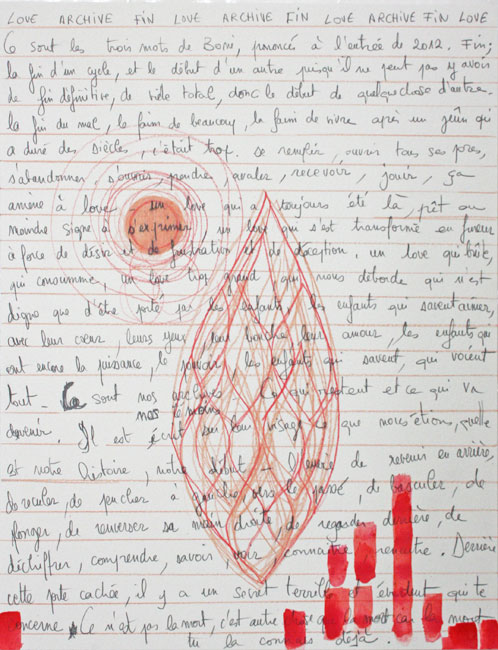 LOVE ARCHIVE FIN LOVE ARCHIVE FIN LOVE ARCHIVE FIN LOVE
Ce sont les trois mots de, prononcés à l'entrée de 2012. Fin,
la fin d'un cycle, et le début d'un autre puisqu'il ne peut pas y avoir
de fin définitive, de vide total, donc le début de quelque chose d'autre.
la fin du mal, la faim de beaucoup, la faim de vivre après un jeûn qui
a duré des siècles, c'était trop se remplir, ouvrir tous ses pores,
s'abandonner, s'ouvrir, prendre, avaler, recevoir, jouir, ça
amène à love, un love qui a toujours été là, prêt au
moindre signe à s'exprimer, un love qui s'est transformé en fureur
à force de désir et de frustration et de déception. un love qui brûle,
qui consumme, un love trop grand qui nous déborde qui n'est
digne que d'être porté par les enfants, les enfants qui savent aimer,
avec leur cœur, leurs yeux, leur bouche, leur amour, les enfants qui
ont encore la puissance, le savoir, les enfants qui savent, qui voient
tout. Ce sont nos archives. Ce qui restent et ce qui va
nos témoins
devenir. Il est écrit sur leur visage ce que nous étions, quelle
est notre histoire, notre début. l'envie de revenir en arrière,
de reculer, de pencher à gauche, vers le passé, de basculer, de
plonger, de renverser sa main droite, de regarder derrière, de
déchiffrer, comprendre, savoir, voir, connaître, renaître. Derrière
cette porte cachée, il y a un secret terrible et évident qui te
concerne. Ce n'est pas la mort, c'est autre chose que la mort car la mort
tu la connais déjà.